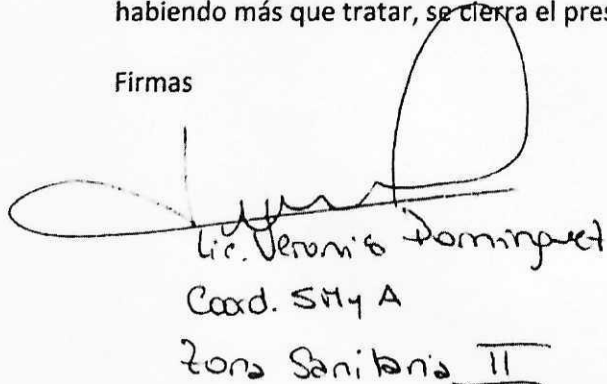 habiendo más que tratar, se cierra el pres
Firmas
Lic. Veronica Dominguez
Coord. SMyA
Zona Sanitaria II